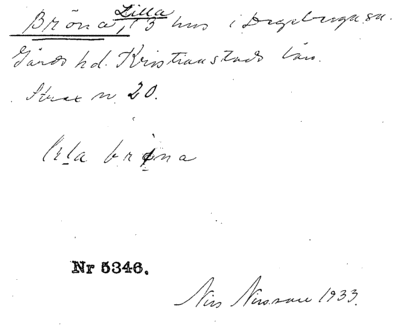 Bröna, Lilla, 3 hus i Degeberga sn.
Gärds hd. Kristianstads län.
Strax n. 20.
lila bröna
Nr 5346.
Nils Nilsson 1933.